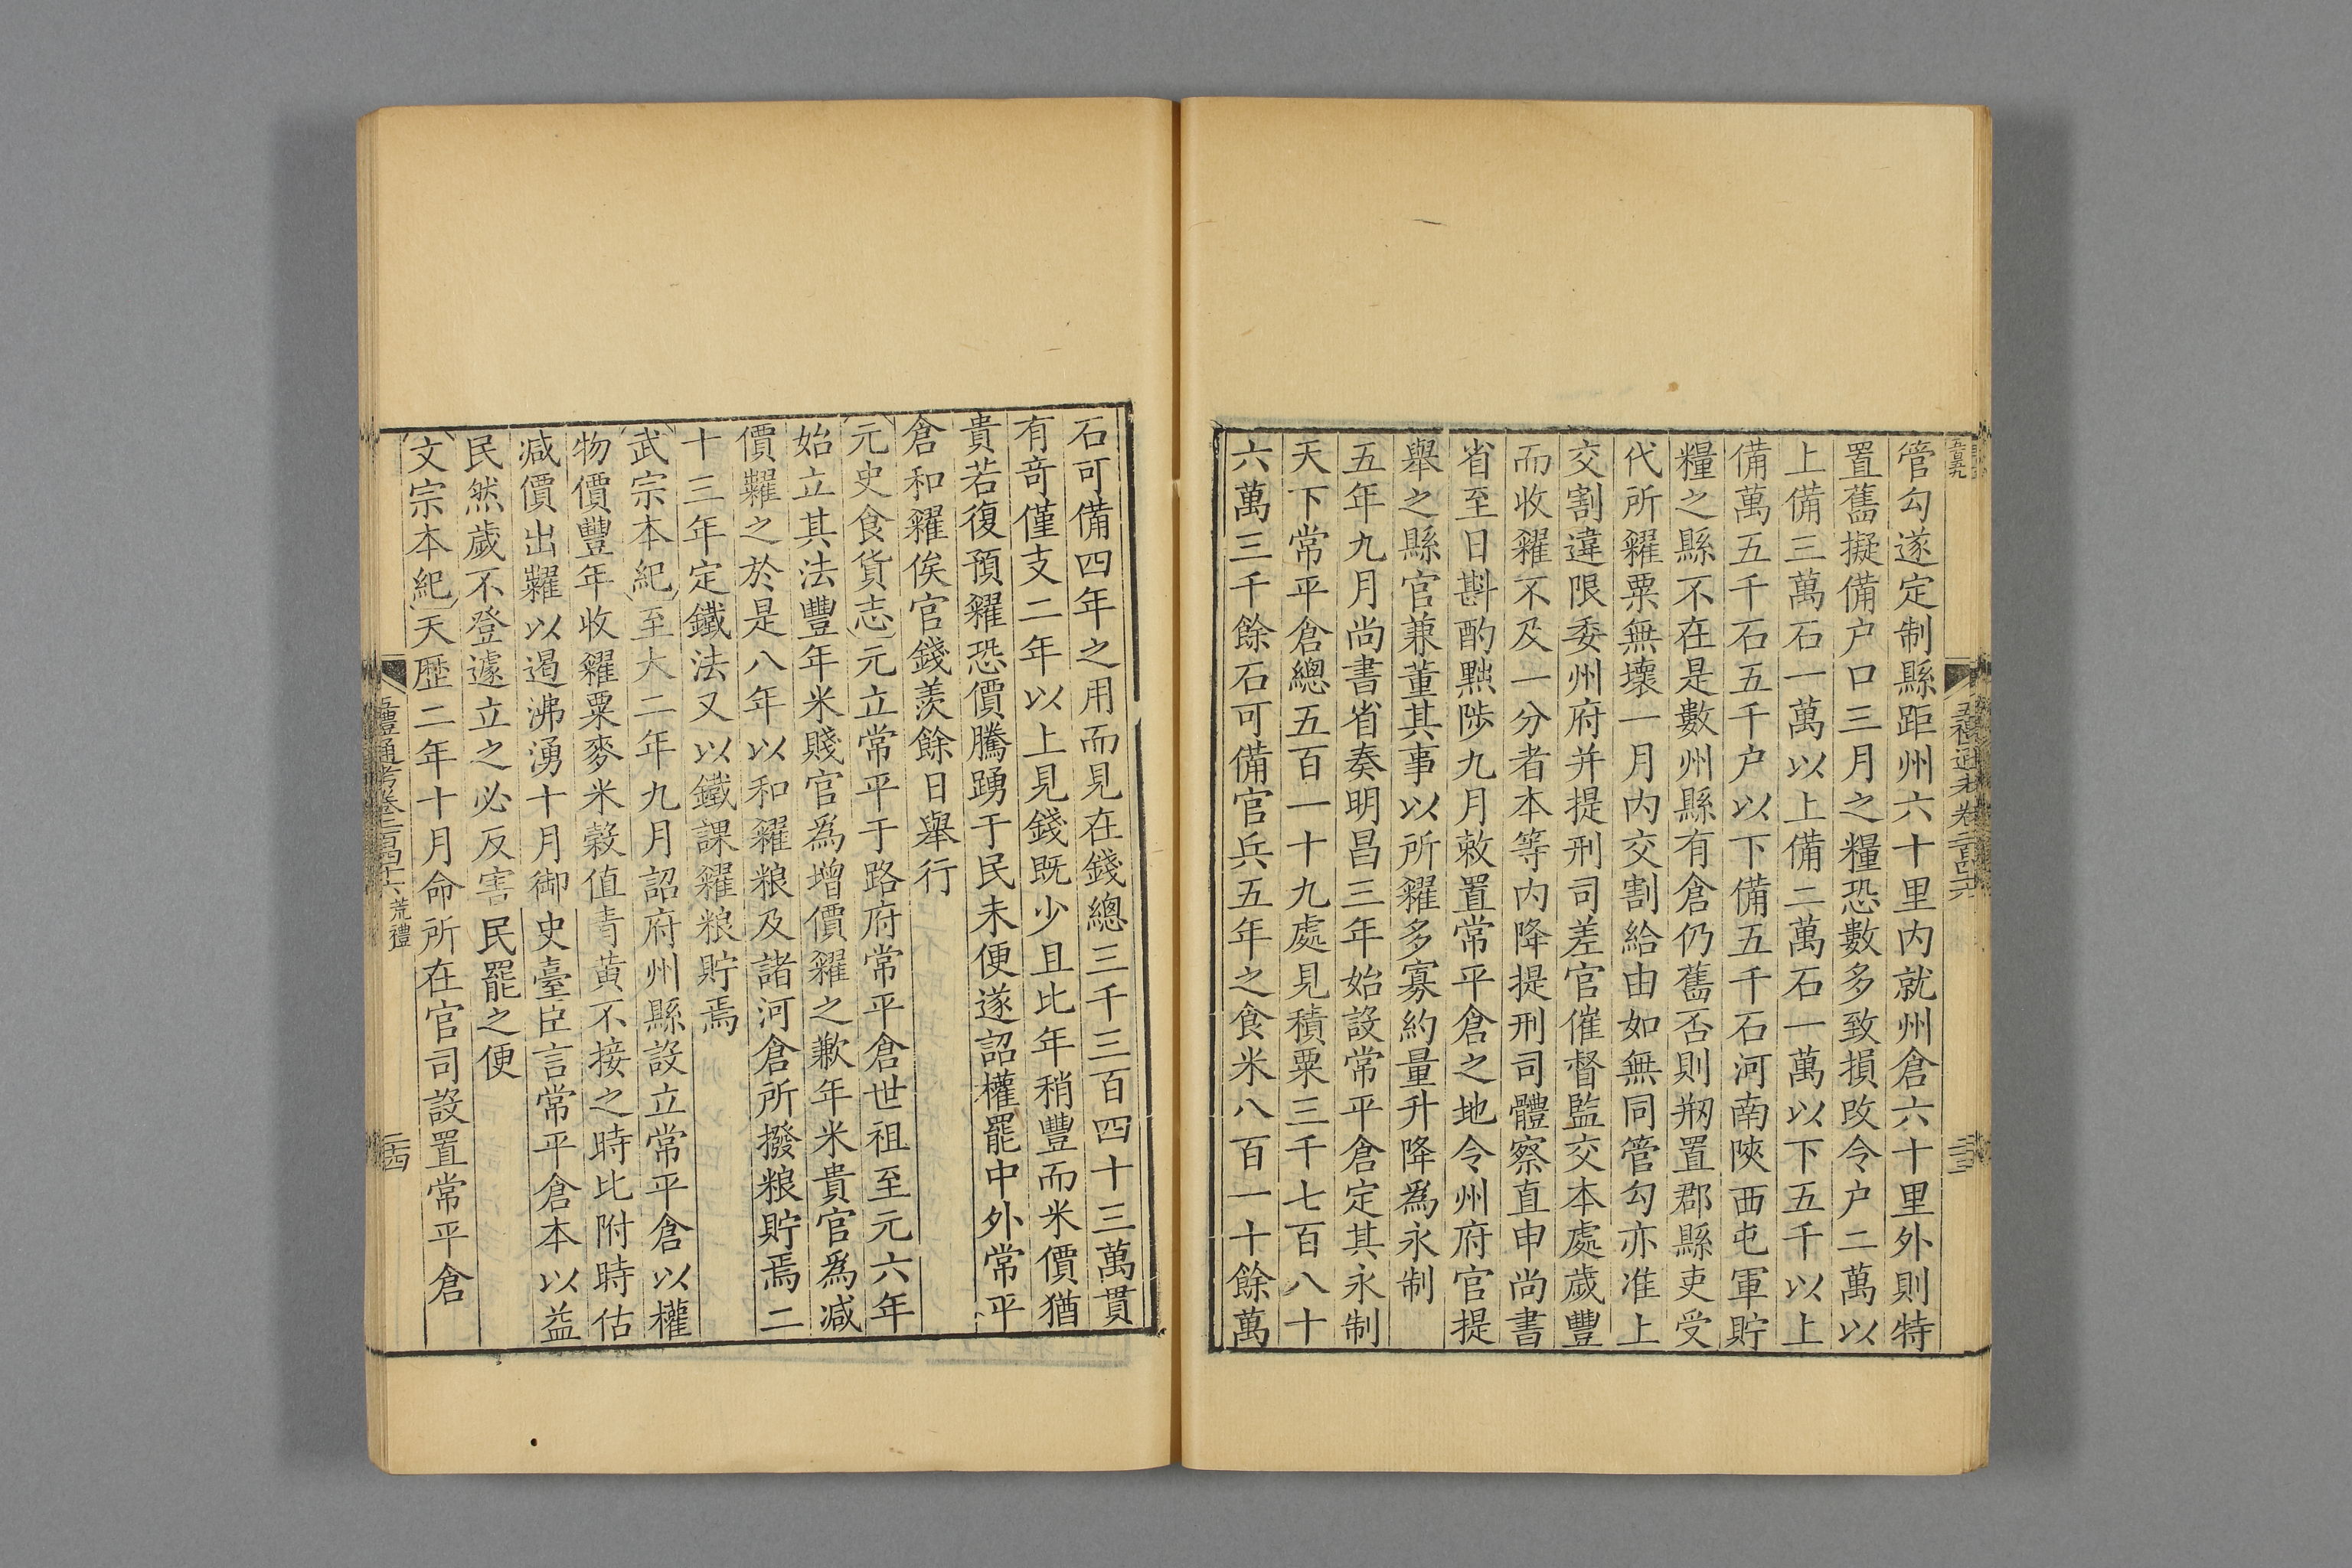 管勾遂定制縣距州六十里内就州倉六十里外則特
置舊擬備户口三月之糧恐數多致損改令户二萬以
上備三萬石一萬以上備二萬石一萬以下五千以上
備萬五千石五千户以下備五千石河南陝西屯軍貯
糧之縣不在是數州縣有倉仍舊否則剏置郡縣吏受
代所糴粟無壞一月内交割給由如無同管勾亦准上
交割違限委州府并提刑司差官催督監交本處歲豐
而收糴不及一分者本等内降提刑司體察直申尚書
省至日斟酌黜陟九月敕置常平倉之地令州府官提
舉之縣官兼董其事以所糴多寡約量升降爲永制
五年九月尚書省奏明昌三年始設常平倉定其永制
天下常平倉總五百一十九處見積粟三千七百八十
六萬三千餘石可備官兵五年之食米八百一十餘萬
石可備四年之用而見在錢總三千三百四十三萬貫
有奇僅支二年以上見錢既少且比年稍豐而米價猶
貴若復預糴恐價騰踴于民未便遂詔權罷中外常平
倉和糴俟官錢羨餘日舉行
元史食貨志元立常平于路府常平倉世祖至元六年
始立其法豐年米賤官爲增價糴之歉年米貴官爲減
價糶之於是八年以和糴粮及諸河倉所撥粮貯焉二
十三年定鐵法又以鐵課糴粮貯焉
武宗本紀至大二年九月詔府州縣設立常平倉以權
物價豐年收糴粟麥米穀值青黄不接之時比附時估
减價出糶以遏沸湧十月御史臺臣言常平倉本以益
民然歲不登遽立之必反害民罷之便
文宗本紀天歷二年十月命所在官司設置常平倉
五禮通考卷二百四十六 荒禮
二十四